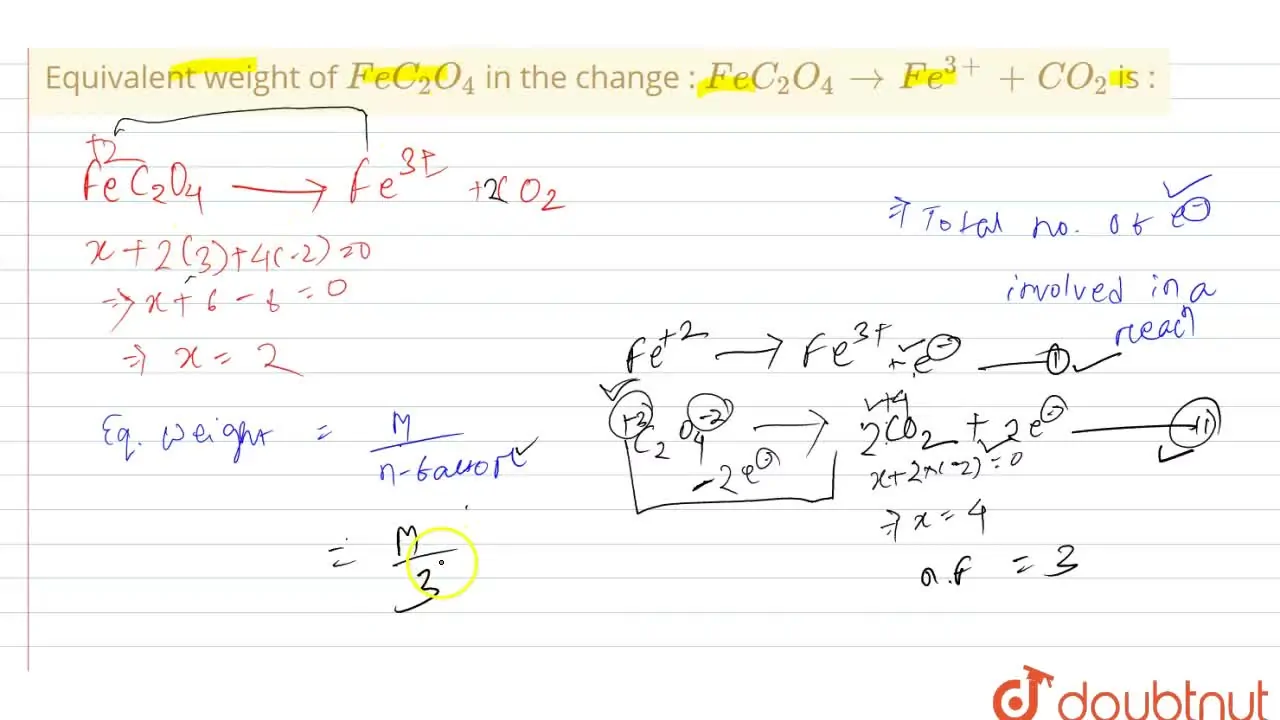 Equivalent weight of FeC₂O₄ in the change : FeC₂O₄ → Fe³⁺ + CO₂ is :
+2
FeC₂O₄ → Fe³⁺ + 2CO₂
x + 2(3) + 4(-2) = 0
⇒ x + 6 - 8 = 0
⇒ x = 2
Eq. weight = M / n-factor
= M / 3
⇒ Total no. of e⁻
involved in a
reacⁿ
Fe⁺² → Fe³⁺ + e⁻ — (I)
+3 -2 +4
C₂O₄ → 2CO₂ + 2e⁻ — (II)
-2e⁻
x + 2×(-2) = 0
⇒ x = 4
n.f = 3
doubtnut